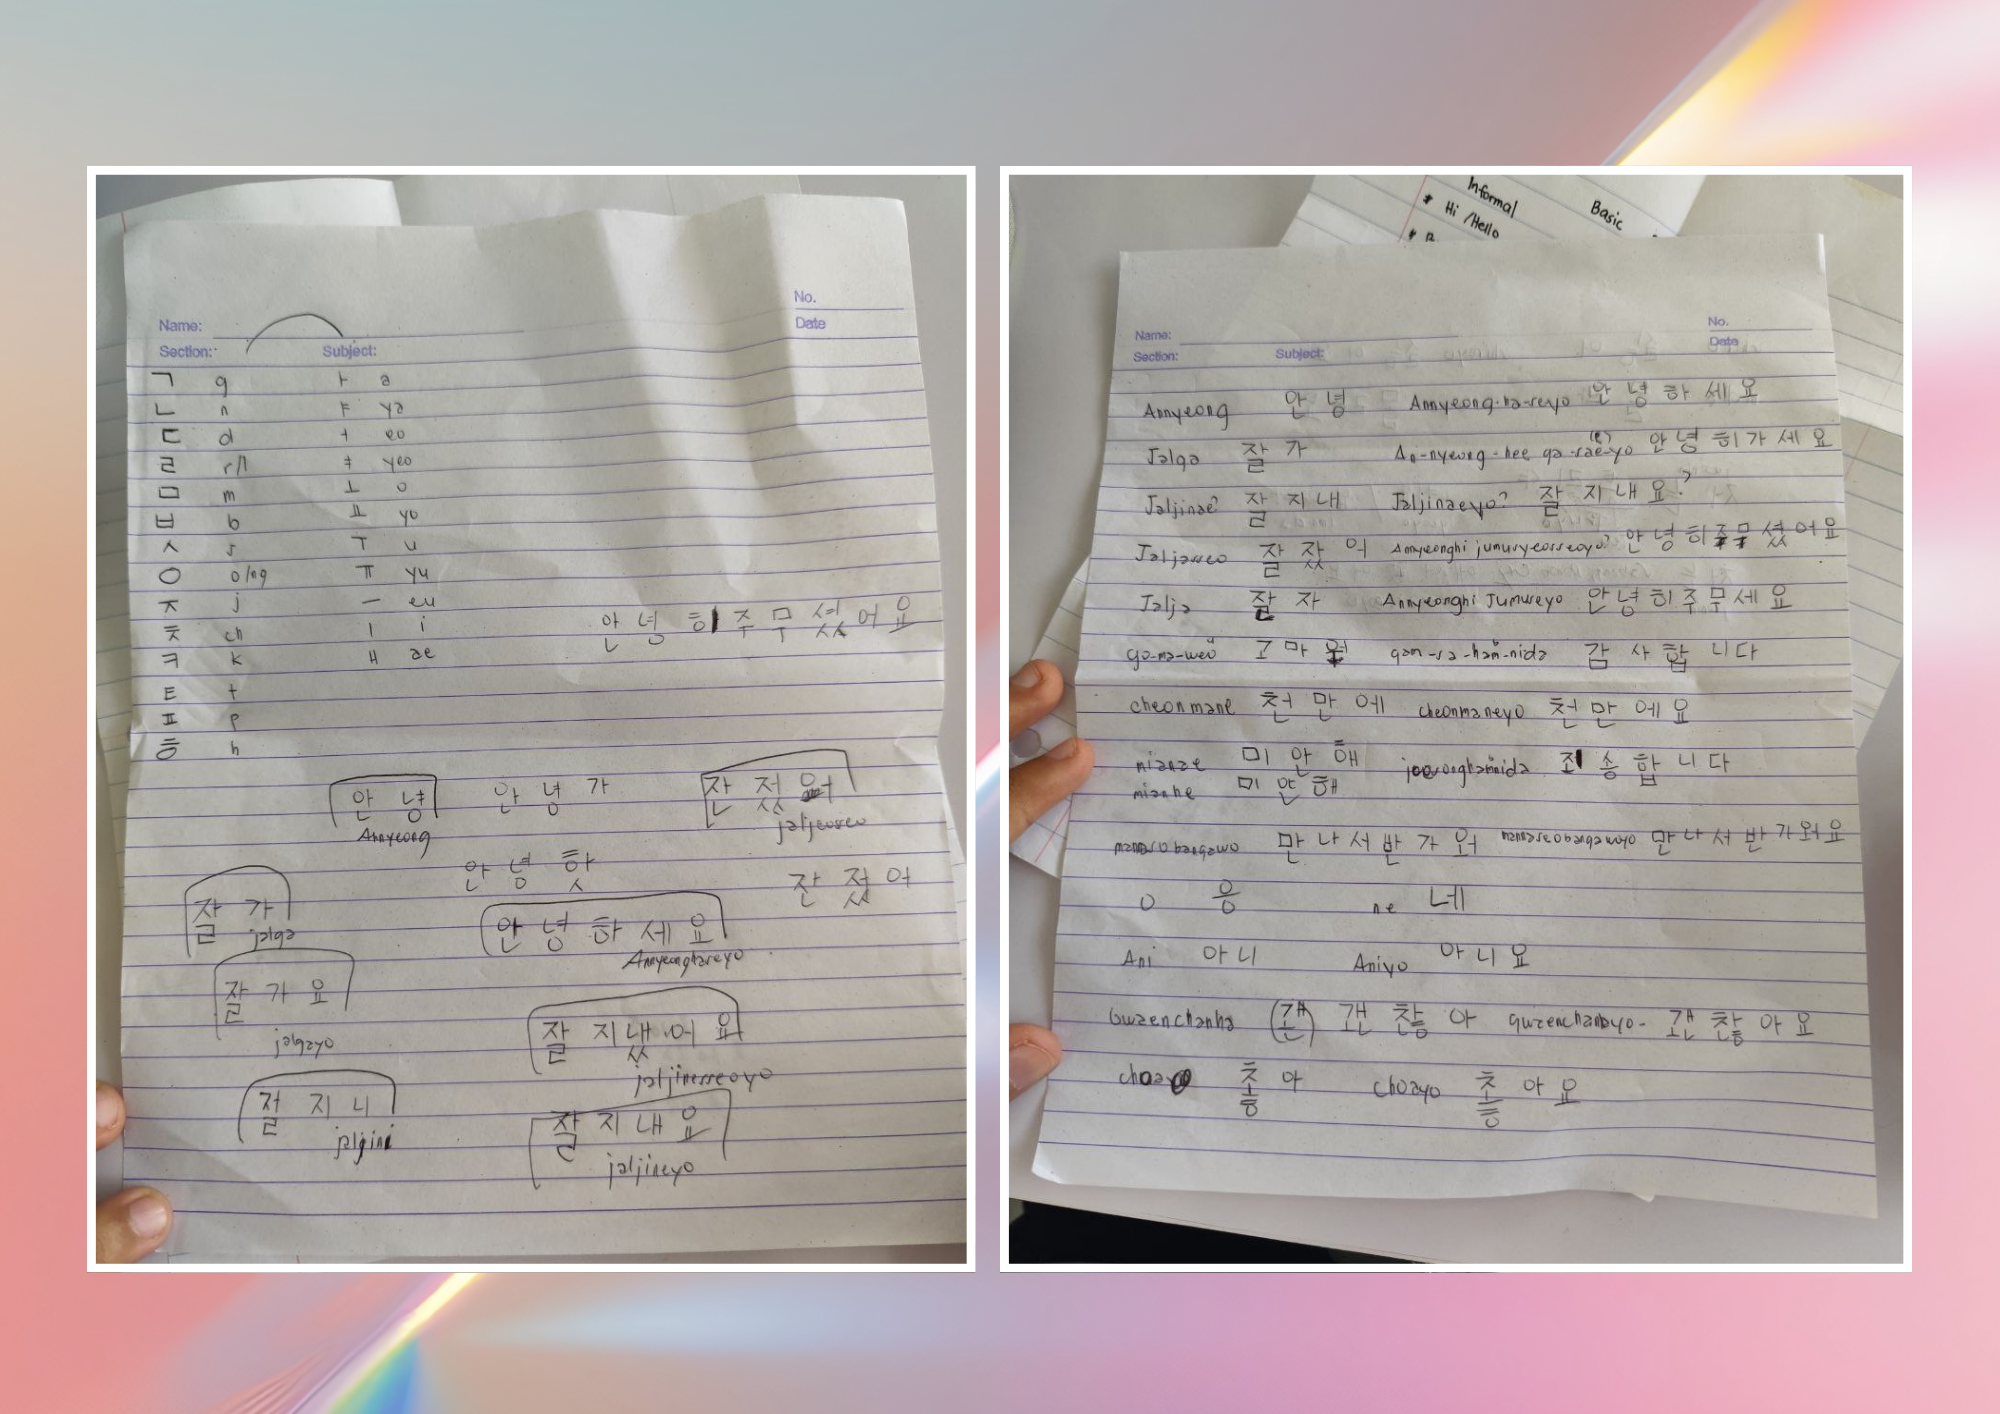 No.
Name:
Date
Section: Subject:
ㄱ g ㅏ a
ㄴ n ㅑ ya
ㄷ d ㅓ eo
ㄹ r/l ㅕ yeo
ㅁ m ㅗ o
ㅂ b ㅛ yo
ㅅ s ㅜ u
ㅇ o/ng ㅠ yu
ㅈ j ㅡ eu
ㅊ ch ㅣ i 안 녕 히 주 무 셨 어 요
ㅋ k ㅐ ae
ㅌ t
ㅍ p
ㅎ h
안 녕 안 녕 가
Annyeong jaljeosseo
안 녕 핫 잔 젔 어
잘 가 안 녕 하 세 요
jalga Annyeonghaseyo
잘 가 요 잘 지 냈 어 요
jalgayo jaljinesseoyo
절 지 니 잘 지 내 요
jaljini jaljineyo
Informal Basic
* Hi /Hello
No.
Name:
Date
Section: Subject:
Annyeong 안 녕 Annyeong-ha-seyo 안 녕 하 세 요
Jalga 잘 가 An-nyeong-hee ga-sae-yo (e) 안 녕 히 가 세 요
Jaljinae? 잘 지 내 Jaljinaeyo? 잘 지 내 요?
Jaljasseo 잘 잤 어 Annyeonghi jumusyeosseoyo? 안 녕 히 주 무 셨 어 요
Jalja 잘 자 Annyeonghi Jumuseyo 안 녕 히 주 무 세 요
go-ma-weo 고 마 워 gam-sa-ham-nida 감 사 합 니 다
cheonmane 천 만 에 cheonmaneyo 천 만 에 요
mianae 미 안 해 joesonghamnida 죄 송 합 니 다
mianhe 미 안 해
mannaseobangawo 만 나 서 반 가 워 mannaseobangawoyo 만 나 서 반 가 워 요
o 응 ne 네
Ani 아 니 Aniyo 아 니 요
Gwaenchanha 괜 찮 아 gwaenchanayo- 괜 찮 아 요
choa 촣 아 choayo 촣 아 요